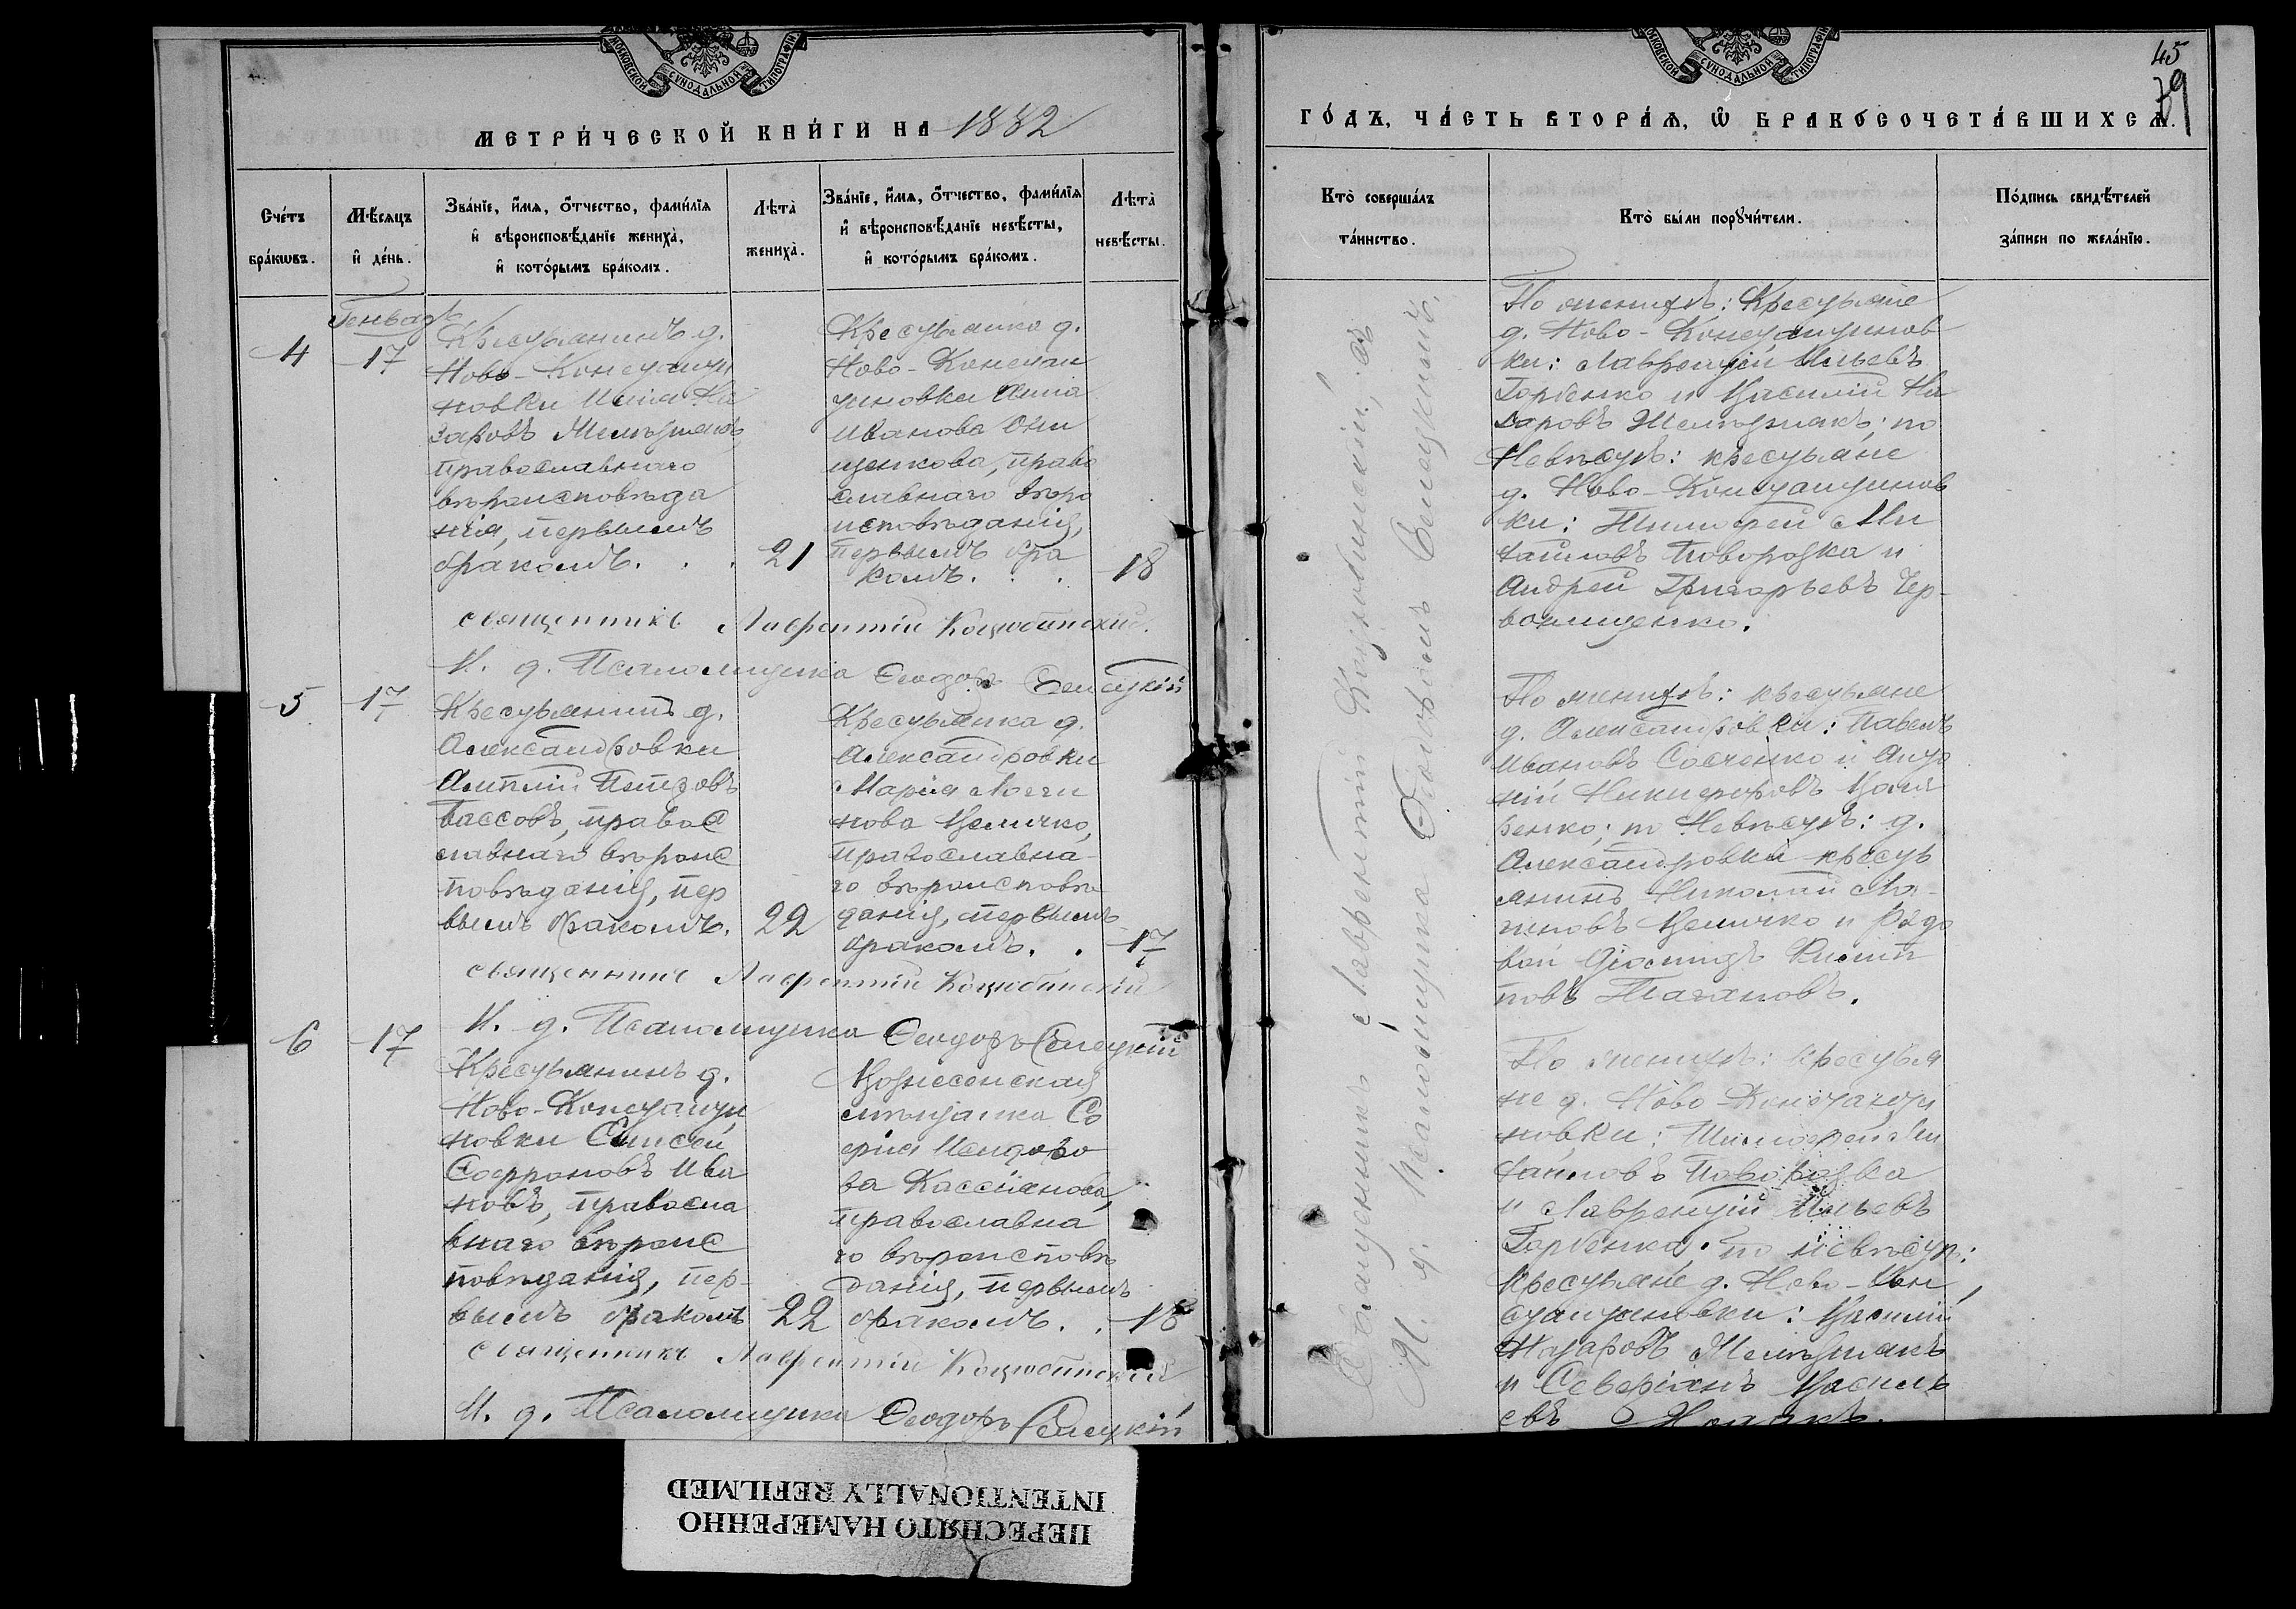 МОСКОВСКОЙ СѴНОДАЛЬНОЙ ТИПОГРАФІИ
МЕТРИ́ЧЕСКОЙ КНИ́ГИ НА 1882
Сче́тъ бра́кωвъ.
Мѣ́сяцъ и҆ де́нь.
Зва́нїе, и҆́мя, ѻ҆́тчество, фами́лїя
и҆ вѣроисповѣ́данїе жениха̀,
и҆ кото́рымъ бра́комъ.
Лѣта̀ жениха̀.
Зва́нїе, и҆́мя, ѻ҆́тчество, фами́лїя
и҆ вѣроисповѣ́данїе невѣ́сты,
и҆ кото́рымъ бра́комъ.
Лѣта̀ невѣ́сты.
Генварь
4
17
Крестьянинъ д.
Ново-Константи
новки Илія На
заровъ Мельтманъ,
православнаго
вѣроисповѣда
нія, первымъ
бракомъ. . .
21
Крестьянка д.
Ново-Констан
тиновки Анна
Иванова Они
щенкова, право
славнаго вѣро
исповѣданія,
первымъ бра
комъ. . .
18
священникъ Лаврентій Коцюбинскій.
И. д. Псаломщика Ѳеодоръ Селецкій
5
17
Крестьянинъ д.
Александровки
Петровъ
Тассовъ, правос
лавнаго вѣроис
повѣданія, пер
вымъ бракомъ.
22
Крестьянка д.
Александровки
Марія Логги
нова Величко,
православна-
го вѣроисповѣ
данія, первымъ
бракомъ. .
17
священникъ Лаврентій Коцюбинскій
И. д. Псаломщика Ѳеодоръ Селецкій
6
17
Крестьянинъ д.
Ново-Константи
новки Елисей
Софроновъ Ива
новъ, правосла
внаго вѣроис
повѣданія, пер-
вымъ бракомъ
22
Вознесенская
мѣщанка Со
фія Исидоро
ва Кассіянова,
православна
го вѣроисповѣ
данія, первымъ
бракомъ. .
18
священникъ Лаврентій Коцюбинскій
И. д. Псаломщика Ѳеодоръ Селецкій
МОСКОВСКОЙ СѴНОДАЛЬНОЙ ТИПОГРАФІИ
45
79
ГО́ДЪ, ЧА́СТЬ ВТОРА́Я, Ѡ҆ БРАКОСОЧЕТА́ВШИХСЯ.
Кто̀ соверша́лъ та́инство.
Кто̀ бы́ли порꙋчи́тели.
По́дпись свидѣ́телей
за́писи по жела́нїю.
Священникъ Лаврентій Коцюбинскій, съ
И. д. Псаломщика Ѳеодоромъ Селецкимъ.
По женихѣ: Крестьяне
д. Ново-Константинов
ки: Лаврентій Ильевъ
Горбенко и Василій На
заровъ Мельтманъ; по
Невѣстѣ: крестьяне
д. Ново-Константинов
ки: Тимофей Ми
хайловъ Поворозка и
Андрей Григорьевъ Чер-
вонищенко.
По женихѣ: крестьяне
д. Александровки: Павелъ
Ивановъ Совченко и Анто
ній Никифоровъ
по Невѣстѣ: д.
Александровки кресть
янинъ Николай Ло-
гиновъ Величко и Рядо
вой
повъ Тагановъ.
По женихѣ: Крестья
не д. Ново Константи
новки: Тимофей Ми
хайловъ Поворозка
и Лаврентій Ильевъ
Горбенко, по невѣстѣ:
Крестьяне д. Ново-Кон
стантиновки: Василій
Назаровъ Мельтманъ
и Северіянъ Василь
евъ
ПЕРЕСНЯТО НАМЕРЕННО
INTENTIONALLY REFILMED